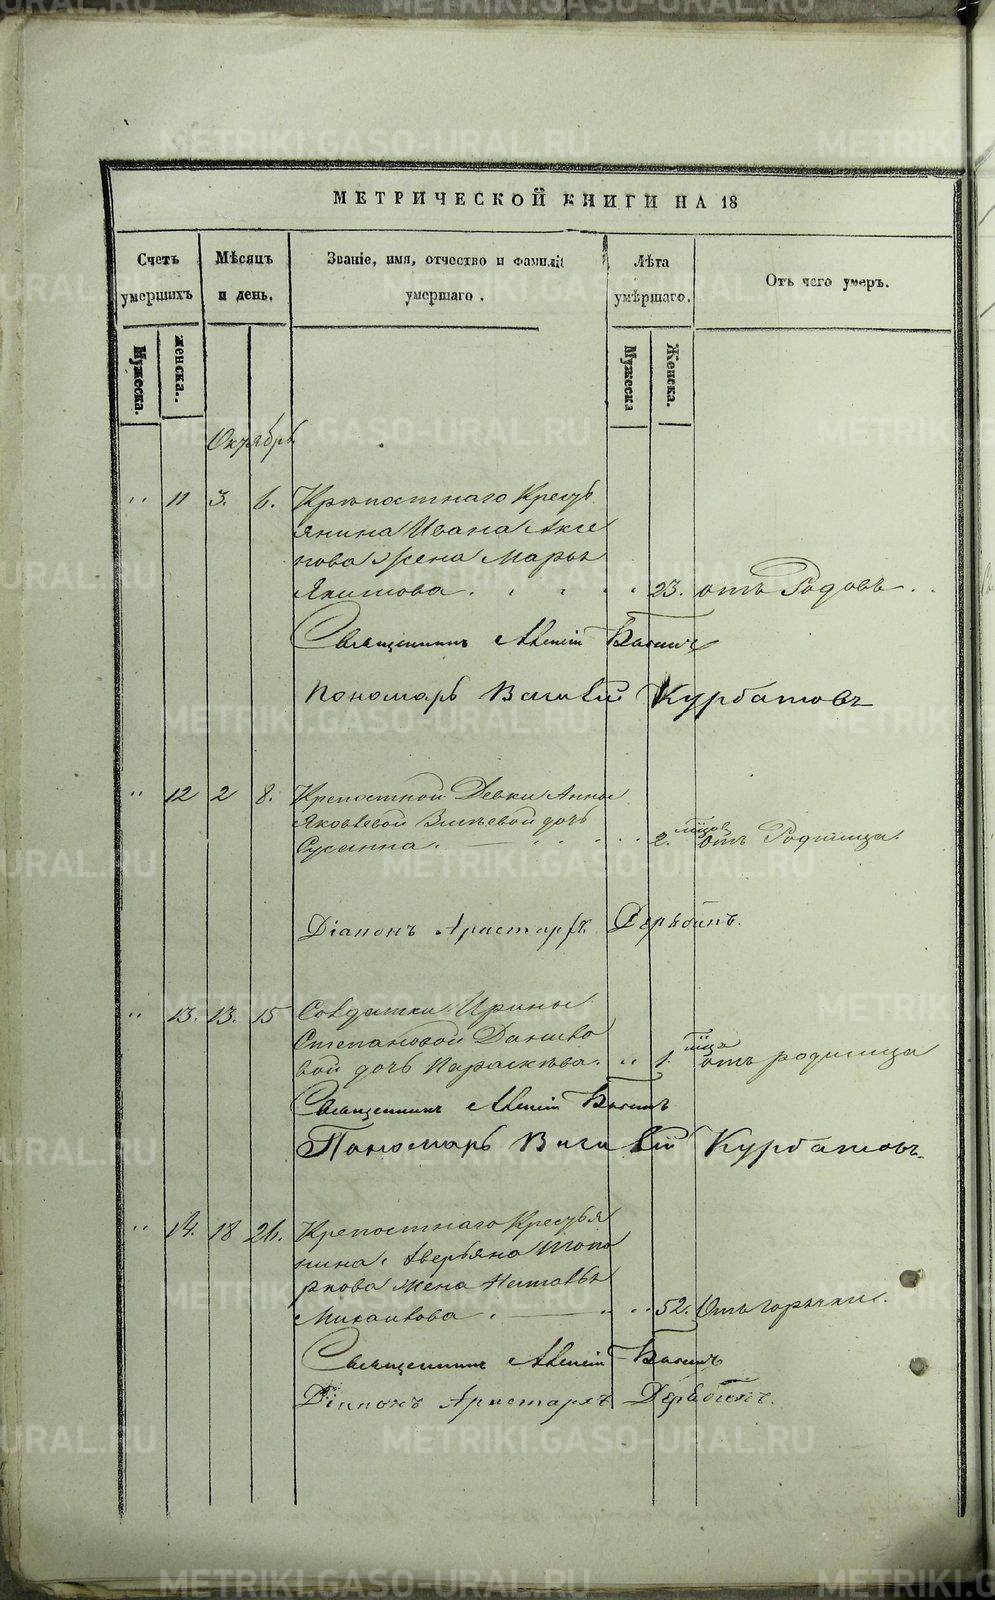 МЕТРИЧЕСКОЙ КНИГИ НА 18
Счетъ умершихъ
Мѣсяцъ и день.
Званіе, имя, отчество и фамилія умершаго.
Лѣта умершаго.
Отъ чего умеръ.
Мужеска.
женска.
Мужеска
Женска.
Октябрь
" 11 3. 6. Крѣпостнаго Кресть
янина Ивана Аксе
нова Жена Марья
Якимова. 23. отъ Родовъ.
Священникъ
Пономарь Василій Курбатовъ
" 12 2 8. Крепостной Девки Анны
Яковлевой дочь
Сусанна. 2. мцов отъ Родимца.
Діаконъ Аристархъ Дерябинъ.
" 13. 13. 15 Солдатки Ирины
Степановой Данило
вой дочь Параскѣва. " 1. мца отъ родимца
Священникъ
Пономарь Василій Курбатовъ.
" 14. 18 26. Крепостнаго Крестья
нина Аверьяна Топо
ркова жена Наталья
Михайлова. 52. Отъ горячки.
Священникъ
Діаконъ Аристархъ Дерябинъ.
METRIKI.GASO-URAL.RU